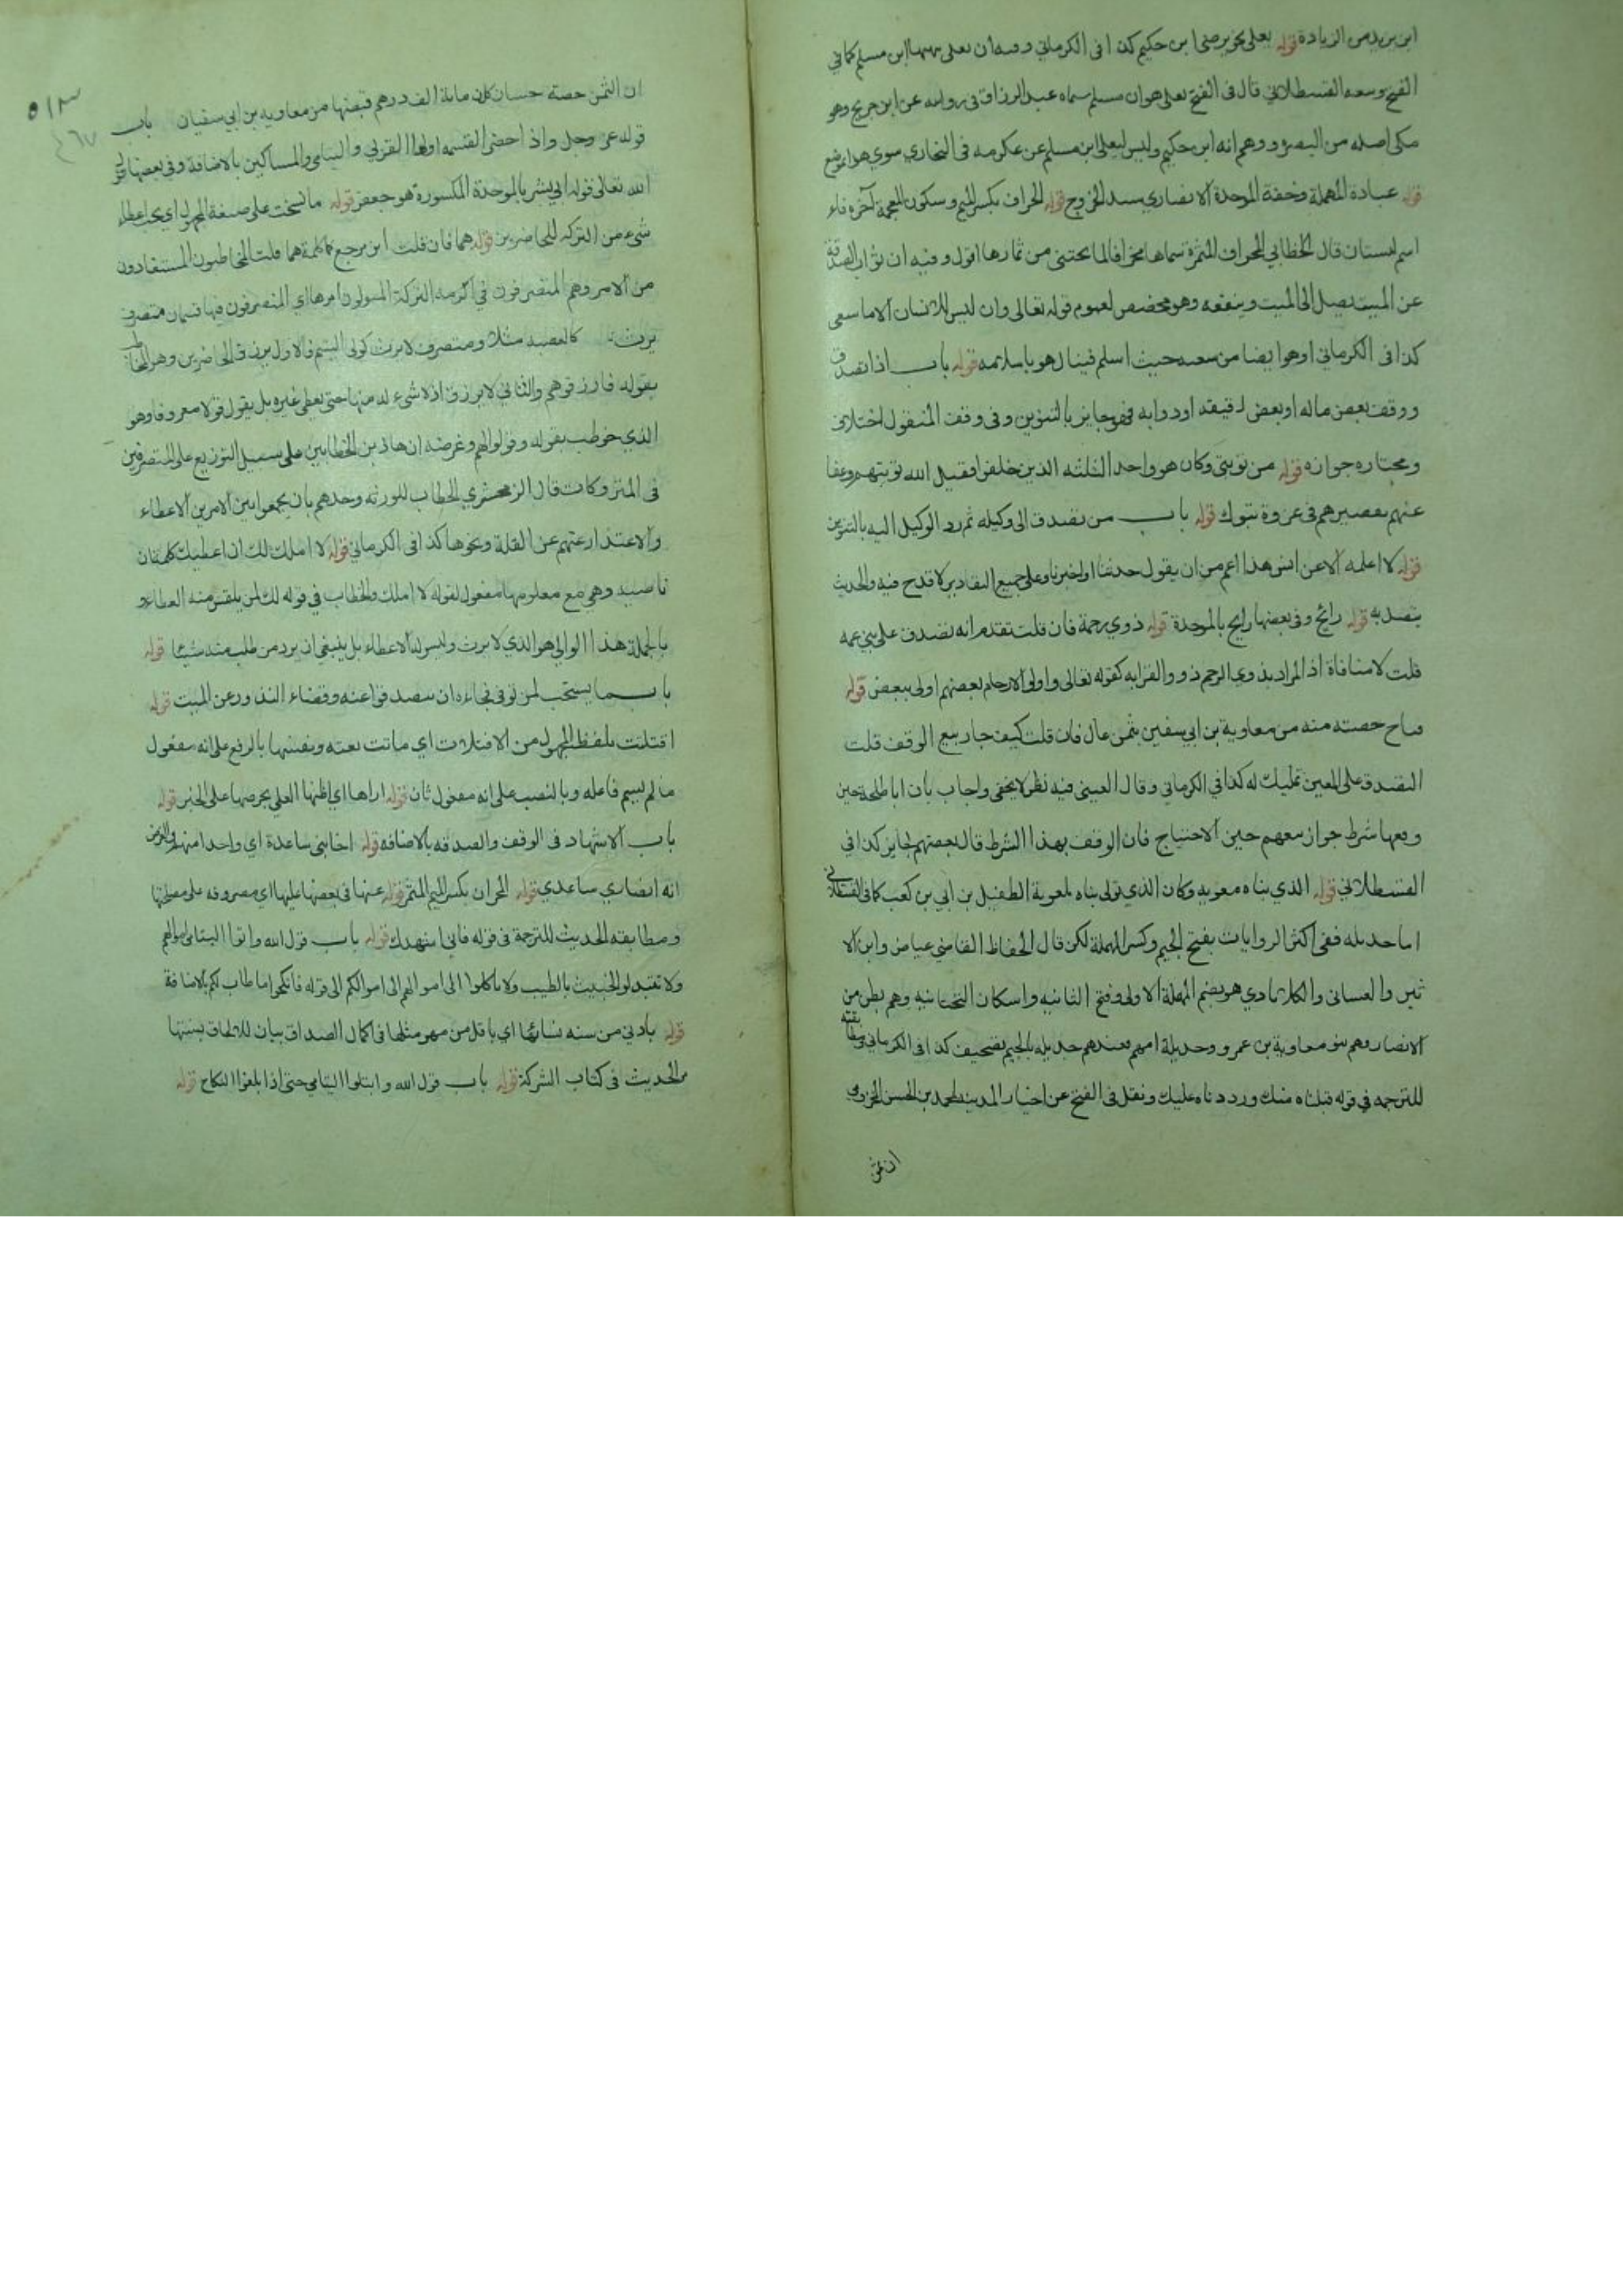 ابن يزيد من الزيادة قوله يعلى بحرير صى ابن حكيم كذا فى الكرماني وفيه ان يعلى ابن مسلم كما في
الفتح وتبعه القسطلاني قال فى الفتح يعلى هو ابن مسلم سماه عبد الرزاق فى روايته عن ابن جريج وهو
مكى اصله من البصرة ووهم انه ابن حكيم وليس ليعلى ابن مسلم عن عكرمه فى البخاري سوي هذا الموضع
قوله عبادة المهملة وخفة الموحدة الانصاري سيد الخزرج قوله المخراف بكسر الميم وسكون المعجمة آخره فاء
اسم لبستان قال الخطابي المخراف المثمرة سماها مخرافا لما يجتنى من ثمارها اقول وفيه ان ثواب الصدقة
عن الميت يصل الى الميت وينفعه وهو مخصص لعموم قوله تعالى وان ليس للانسان الا ما سعى
كذا فى الكرماني اوهو ايضا من سعيه حيث اسلم فينال هو باسلامه قوله باب اذا تصدق
ووقف بعض ماله او بعض رقيقه او دوابه فهو جايز بالتنوين وفى وقف المنقول اختلاف
ومختاره جوازه قوله من توبتى وكان هو واحد الثلثه الذين خلفوا فقبل الله توبتهم وعفا
عنهم تقصيرهم فى غزوة تبوك قوله باب من تصدق الى وكيله ثم رد الوكيل اليه بالتنوين
قوله لا اعلمه الا عن انس هذا اعم من ان يقول حدثنا او اخبرنا وعلى جميع التقادير لا قدح فيه والحديث
يتصد به قوله رائح وفى بعضها رابح بالموحدة قوله ذوي رحمة فان قلت تقدم انه تصدق على بني عمه
قلت لا منافاة اذ المراد بذوي الرحم ذوو القرابه كقوله تعالى واولى الارحام بعضهم اولى ببعض قوله
وباع حصته منه من معاوية بن ابي سفين بثمن عال فان قلت كيف جاز بيع الوقف قلت
التصدق على المعين تمليك له كذا في الكرماني وقال العينى فيه نظر لا يخفى واجاب بان ابا طلحة حين
وقفها شرط جواز بيعهم حين الاحتياج فان الوقف بهذا الشرط قال بعضهم بجايز كذا في
القسطلاني قوله الذي بناه معويه وكان الذي تولى بناه لمعوية الطفيل بن ابي بن كعب كما فى القسطلاني
اما حديله ففى اكثر الروايات بفتح الجيم وكسر المهملة لكن قال الحفاظ القاضي عياض وابن الا
ثير والغسانى والكلابادي هو بضم المهملة الاولى وفتح الثانيه واسكان التحتانيه وهم بطن من
الانصار وهم بنو معاوية بن عمرو وحديلة امهم بعندهم جديله بالجيم تصحيف كذا فى الكرماني ومطابقته
للترجمه في قوله قبلناه منك ورددناه عليك ونقل فى الفتح عن اخبار المدينة لمحمد بن الحسن المخزومي
ان ثمن
ان الثمن حصته حسان كان ماية الف درهم قبضها من معاويه بن ابي سفيان باب
قوله عز وجل واذا حضر القسمه اولوا القربي واليتامى والمساكين بالاضافة وفى بعضها
الله تعالى قوله ابي بشر بالموحدة المكسورة هو جعفر قوله ما نسخت على صيغة المجهول اي يجب اعطاء
شيء من التركه للحاضرين قوله هما فان قلت اين مرجع كلمة هما قلت المخاطبون المستفادون
من الامر وهم المتصرفون في التركة المتولون امرها اي المتصرفون فيها قسمان متصرف
يرث كالعصبه مثلا ومتصرف لا يرث كولى اليتيم فالاول يرزق الحاضرين وهو المخاطب
بقوله فارزقوهم والثاني لا يرزق اذ لا شيء له منها حتى يعطى غيره بل يقول قولا معروفا وهو
الذي خوطب بقوله وقولوا لهم وغرضه ان هاذين الخطابين على سبيل التوزيع على المتصرفين
فى المتروكات قال الزمخشري الخطاب للورثه وحدهم بان يجمعوا بين الامرين الاعطاء
والاعتذار عنهم عن القلة ونحوها كذا فى الكرماني قوله لا املك لك ان اعطيك كلمة ان
ناصبه وهي مع معلومها مفعول لقوله لا املك والخطاب في قوله لك لمن يلتمس منه العطاء و
بالجملة هذا الوالى هو الذي لا يرث وليس له الاعطاء بل ينبغى ان يرد من طلب منه شيئا قوله
باب ما يستحب لمن توفى فجاءه ان يتصدقوا عنه وقضاء النذور عن الميت قوله
افتلتت بلفظ المجهول من الافتلات اي ماتت بغته ونفسها بالرفع على انه مفعول
ما لم يسم فاعله وبالنصب على انه مفعول ثان قوله اراها اي اظنها لعلى بحرصها على الخير قوله
باب الاشهاد فى الوقف والصدقه بالاضافه قوله اخا بنى ساعدة اي واحدا منهم والغرض
انه انصاري ساعدي قوله المخراف بكسر الميم المثمر قوله عنها فى بعضها عليها اي مصروفه على مصلحتها
ومطابقه الحديث للترجمة فى قوله فاني اشهدك قوله باب قول الله واتوا اليتامى اموالهم
ولا تتبدلوا الخبيث بالطيب ولا تاكلوا الى اموالهم الى اموالكم الى قوله فانكحوا ما طاب لكم بالاضافة
قوله بادنى من سنه نسائها اي باقل من مهر مثلها فى اكمال الصداق بيان للالحاق بسنتها
مر الحديث فى كتاب الشركة قوله باب قول الله وابتلوا اليتامي حتى اذا بلغوا النكاح قوله
٤٦٧